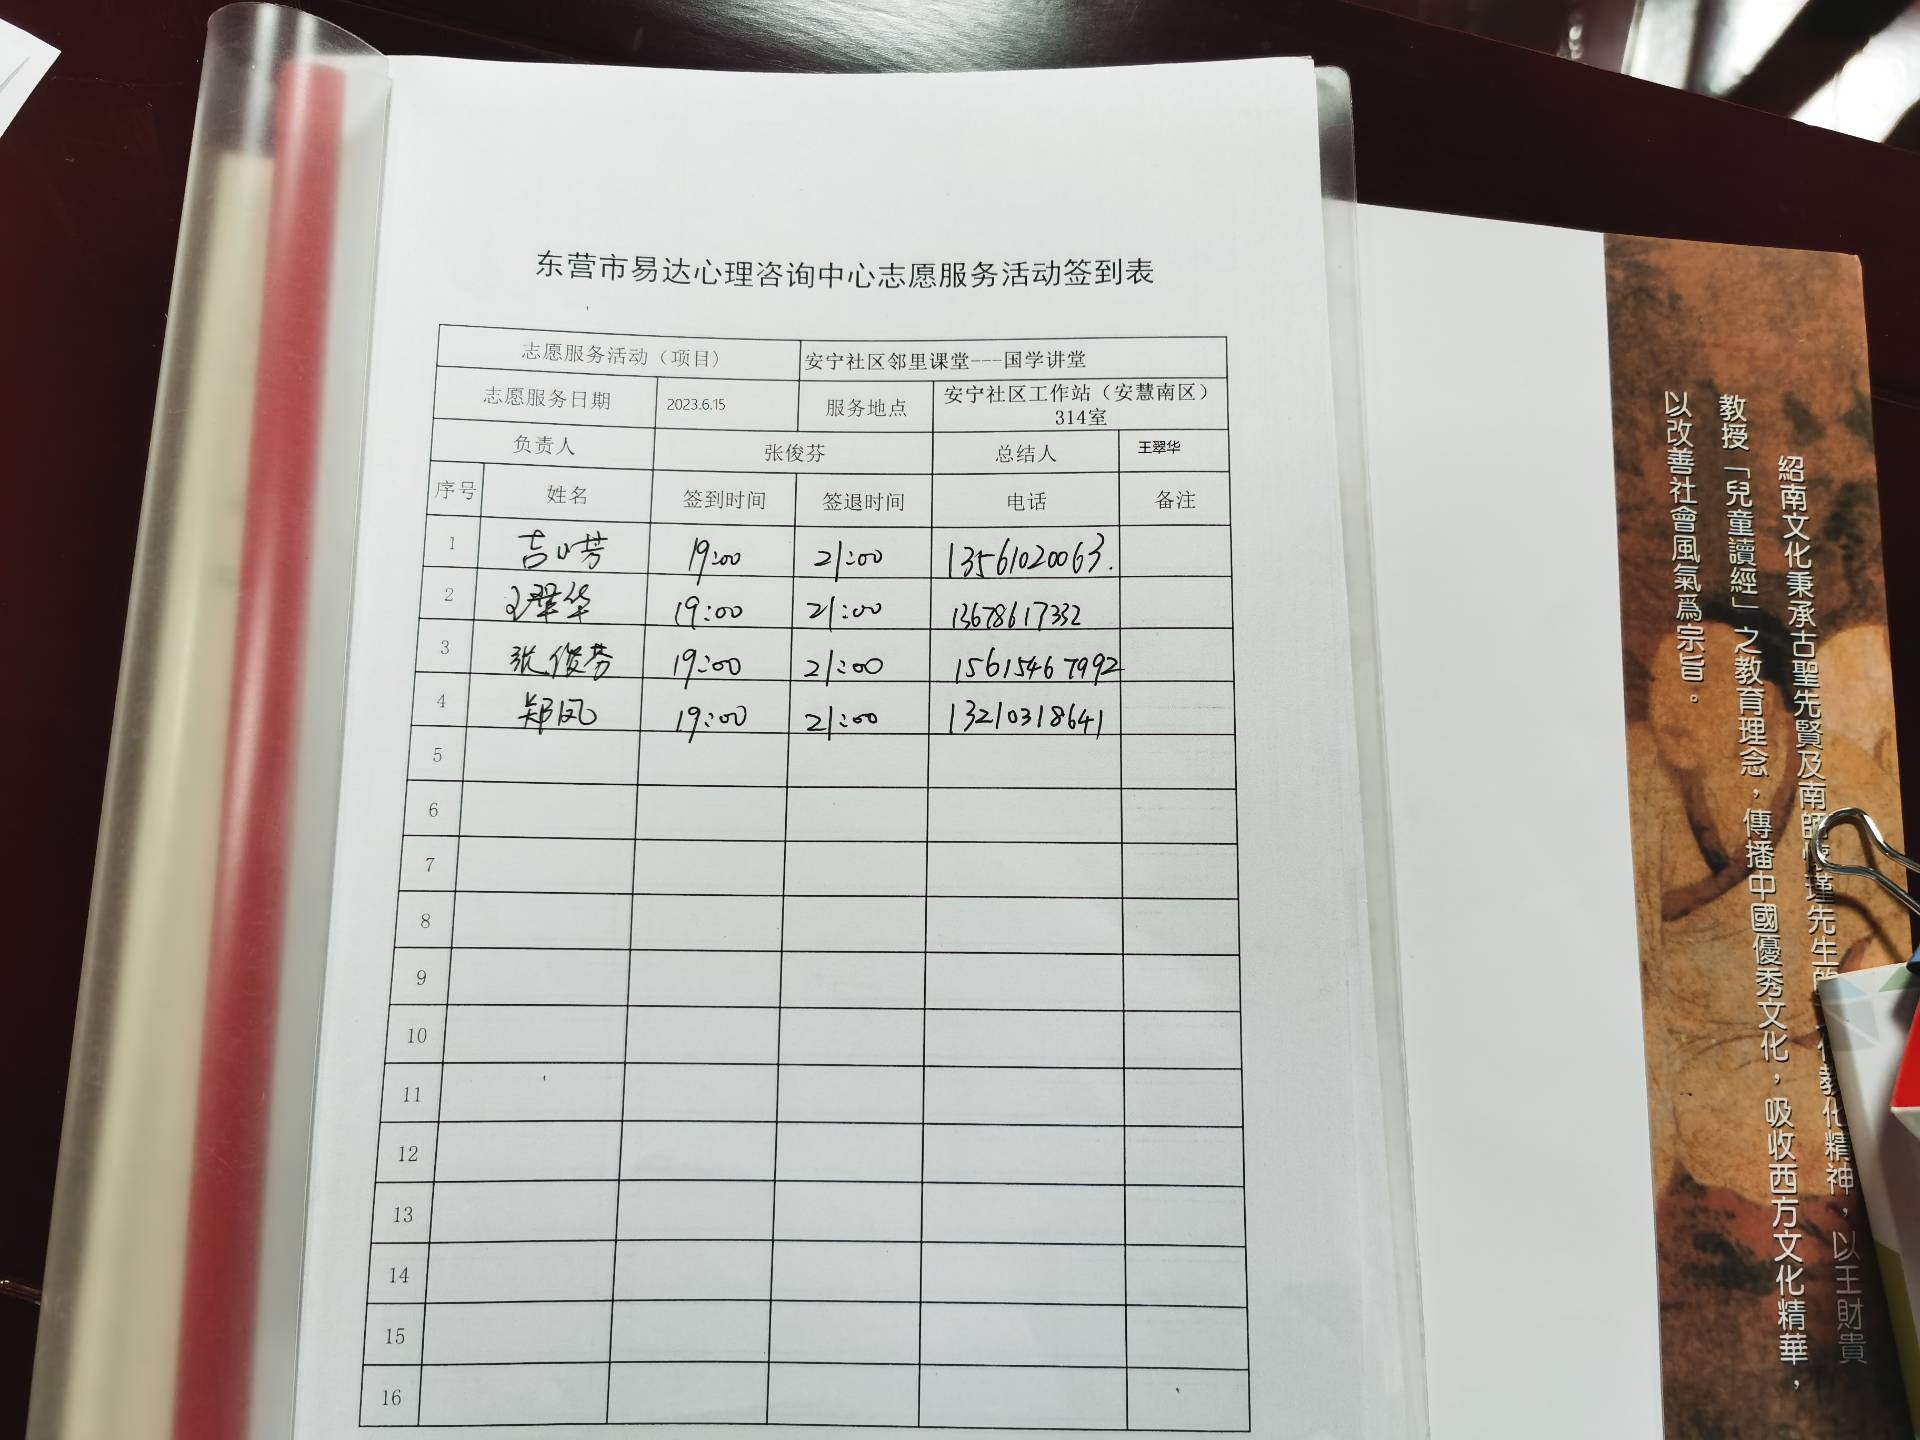 东营市易达心理咨询中心志愿服务活动签到表
志愿服务活动（项目） 安宁社区邻里课堂---国学讲堂
志愿服务日期 2023.6.15 服务地点 安宁社区工作站（安慧南区）
314室
负责人 张俊芬 总结人 王翠华
序号 姓名 签到时间 签退时间 电话 备注
1 19:00 21:00 13561020063.
2 王翠华 19:00 21:00 13678617332
3 张俊芬 19:00 21:00 15615467992
4 郑凤 19:00 21:00 13210318641
5
6
7
8
9
10
11
12
13
14
15
16
紹南文化秉承古聖先賢及南師懷瑾先生的 教化精神，以王財貴
教授「兒童讀經」之教育理念，傳播中國優秀文化，吸收西方文化精華，
以改善社會風氣爲宗旨。